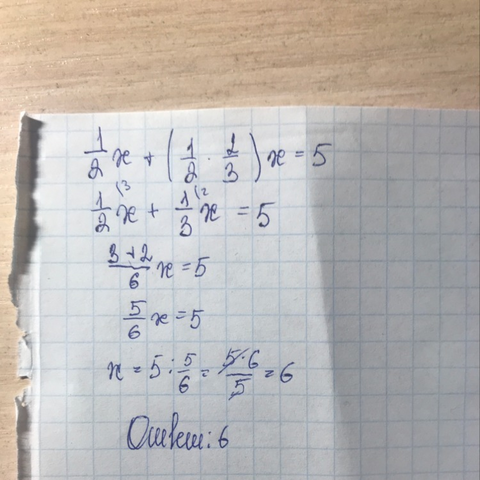 1/2 x + (1/2 · 2/3) x = 5
1/2 x (3 + 1/3 x (2 = 5
3+2/6 x = 5
5/6 x = 5
x = 5 : 5/6 = 5·6/5 = 6
Ответ: 6